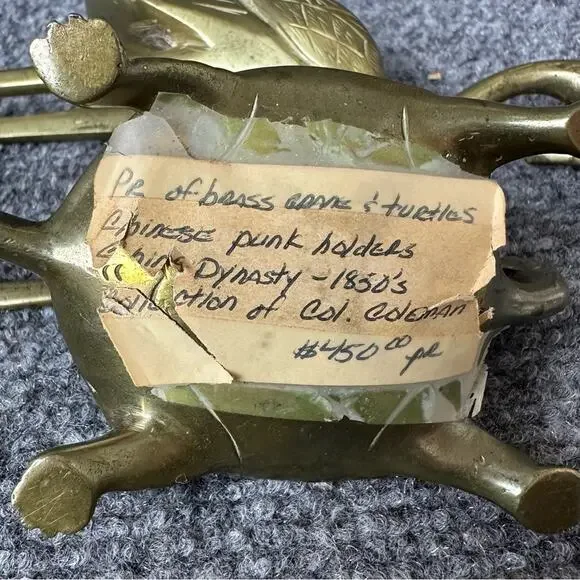 Pr of brass crane & turtles
Chinese punk holders
Ching Dynasty - 1850's
Collection of Col. Coleman
$450.00 pr